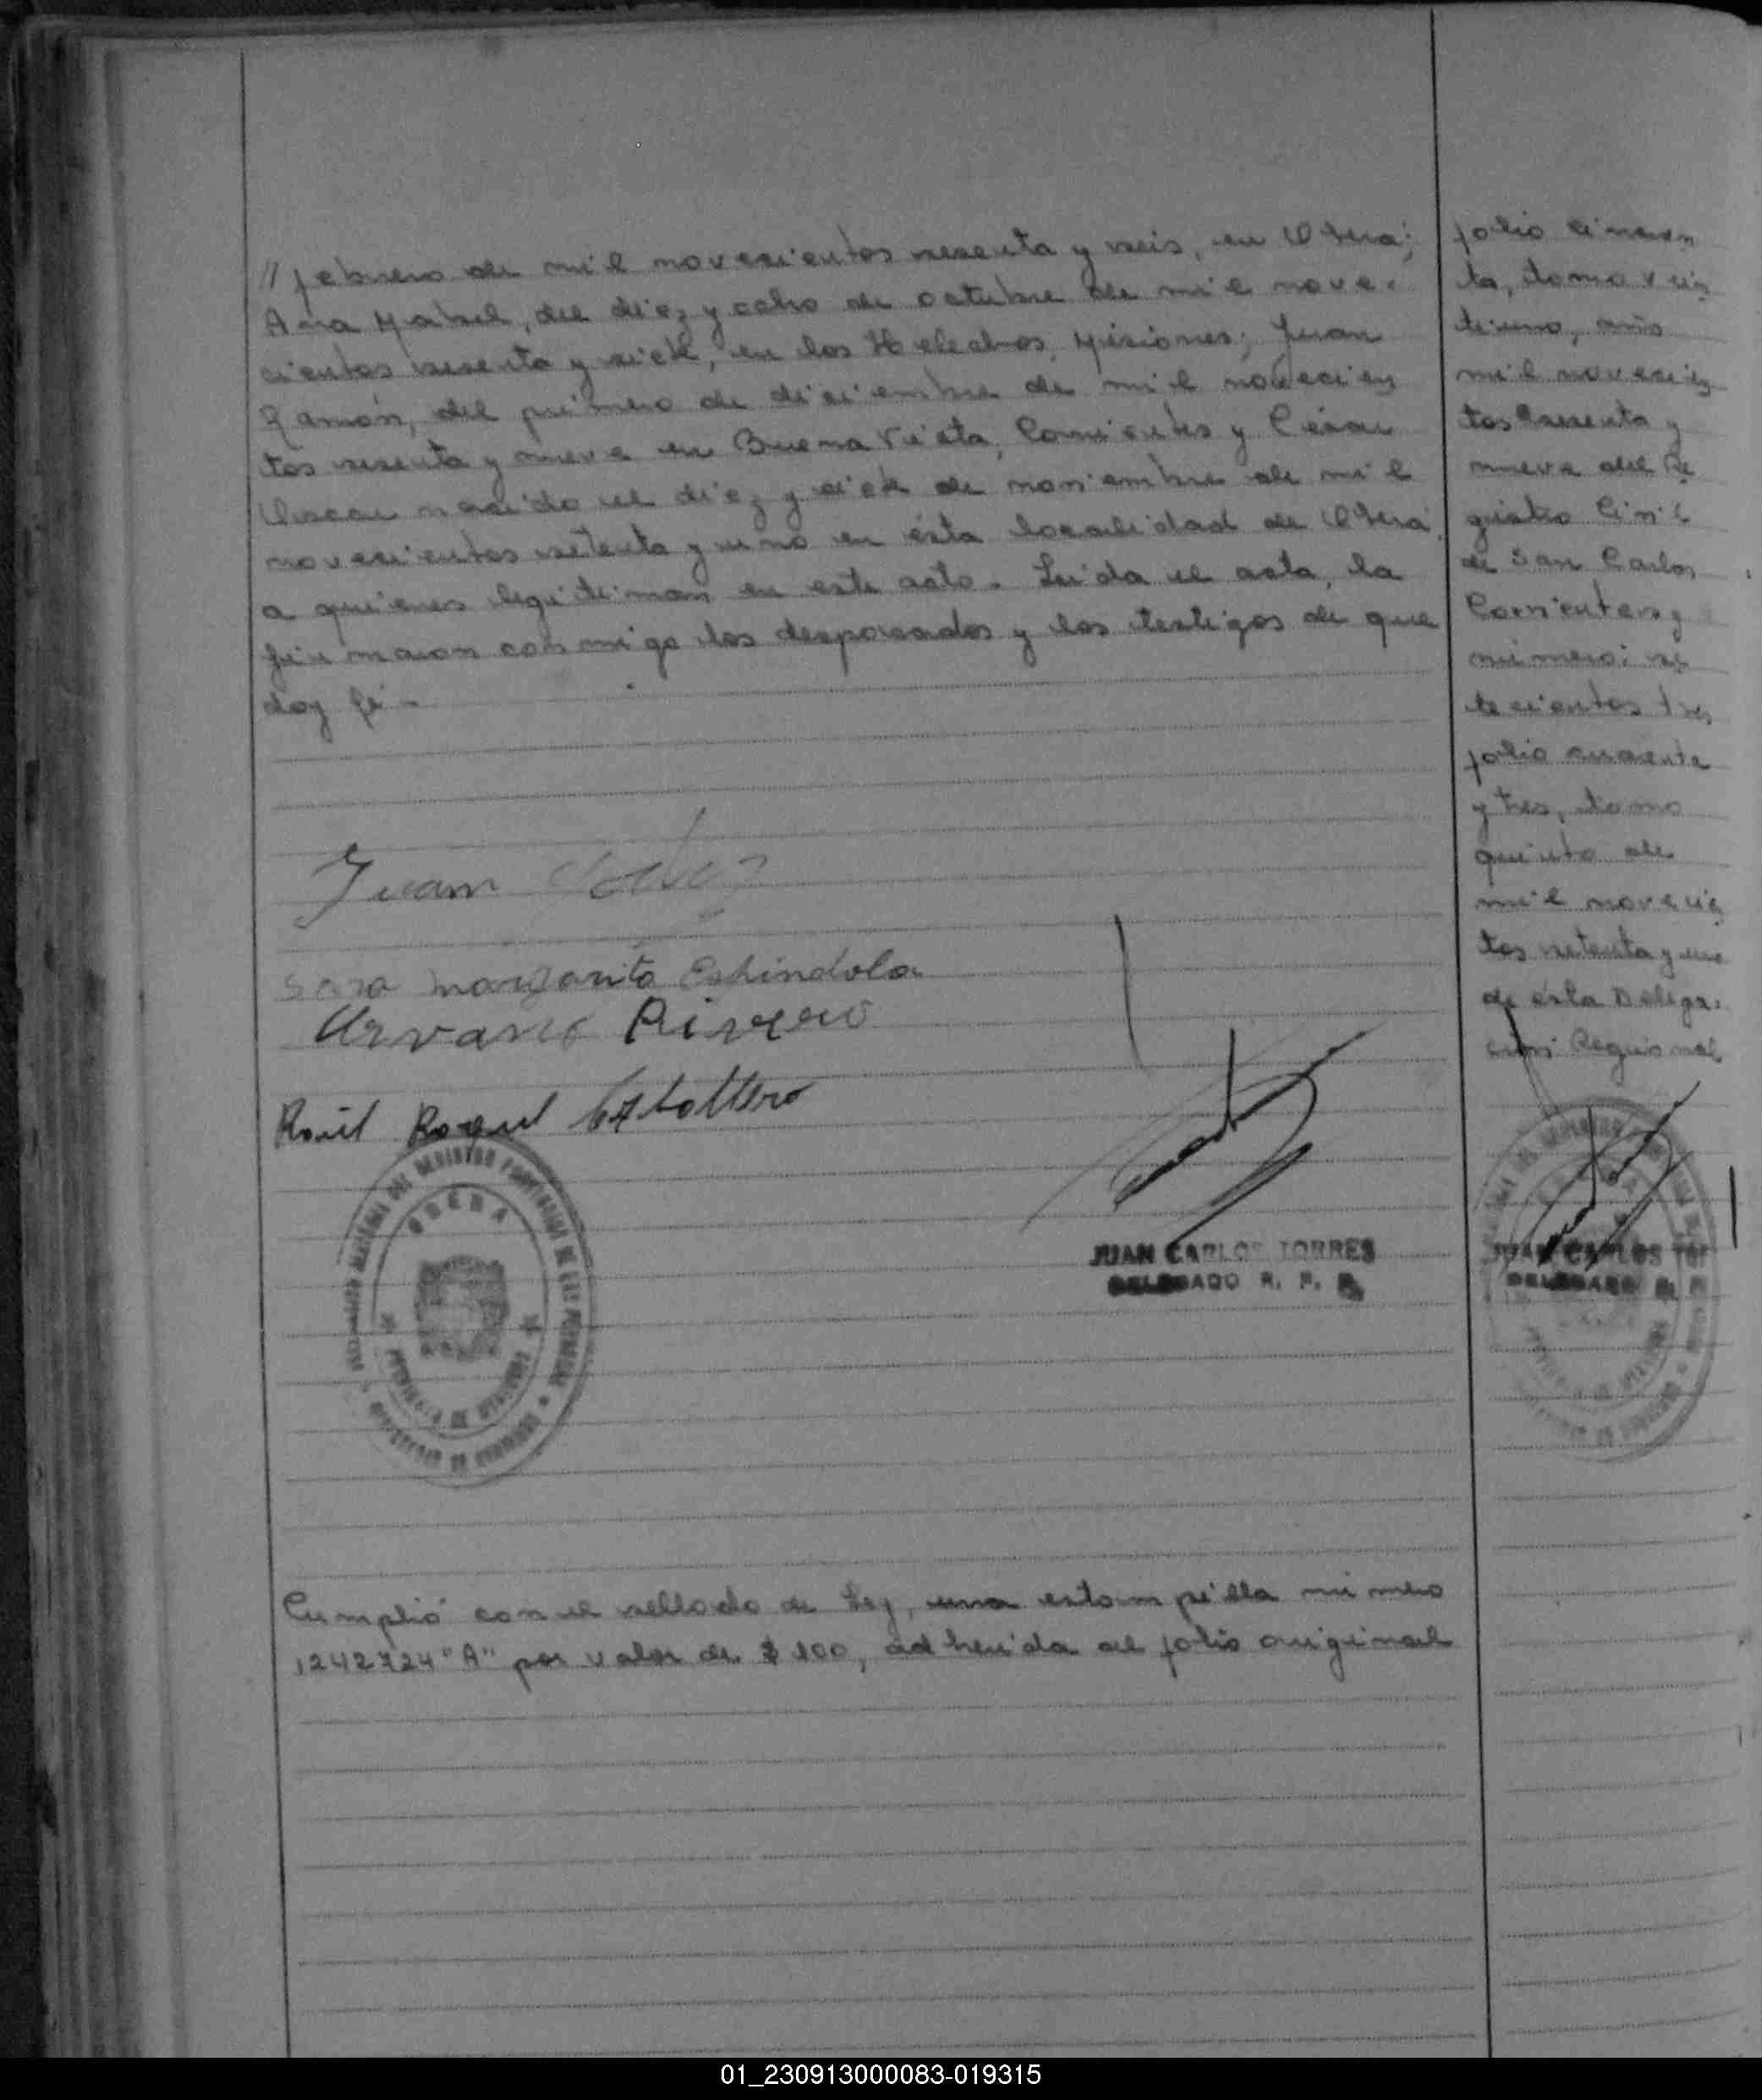 // febrero de mil novecientos sesenta y seis, en Oberá;
Ana Mabel, del diez y ocho de octubre de mil nove-
cientos sesenta y siete, en los Helechos, Misiones; Juan
Ramón, del primero de diciembre de mil novecien
tos sesenta y nueve en Buena Vista, Corrientes y César
Oscar nacido el diez y siete de noviembre de mil
novecientos setenta y uno en ésta localidad de Oberá
a quienes legitiman en este acto. Leída el acta, la
firmaron conmigo los desposados y los testigos de que
doy fé -
Juan
Sara Margarita Espindola
Raúl Roque
JUAN CARLOS TORRES
DELEGADO R. P. P.
OBERA
PROVINCIA DE MISIONES
Cumplió con el sellado de Ley, una estampilla número
1242724 "A" por valor de $ 100, adherida al folio original
folio cincuen
ta, tomo vein
tiuno, año
mil novecien
tos sesenta y
nueve del Re
gistro Civil
de San Carlos
Corrientes y
número: se
tecientos tres
folio cuarenta
y tres, tomo
quinto de
mil novecien
tos setenta y uno
de ésta Delega-
ción Regional
JUAN CARLOS TOR
DELEGADO R. P.
01_230913000083-019315